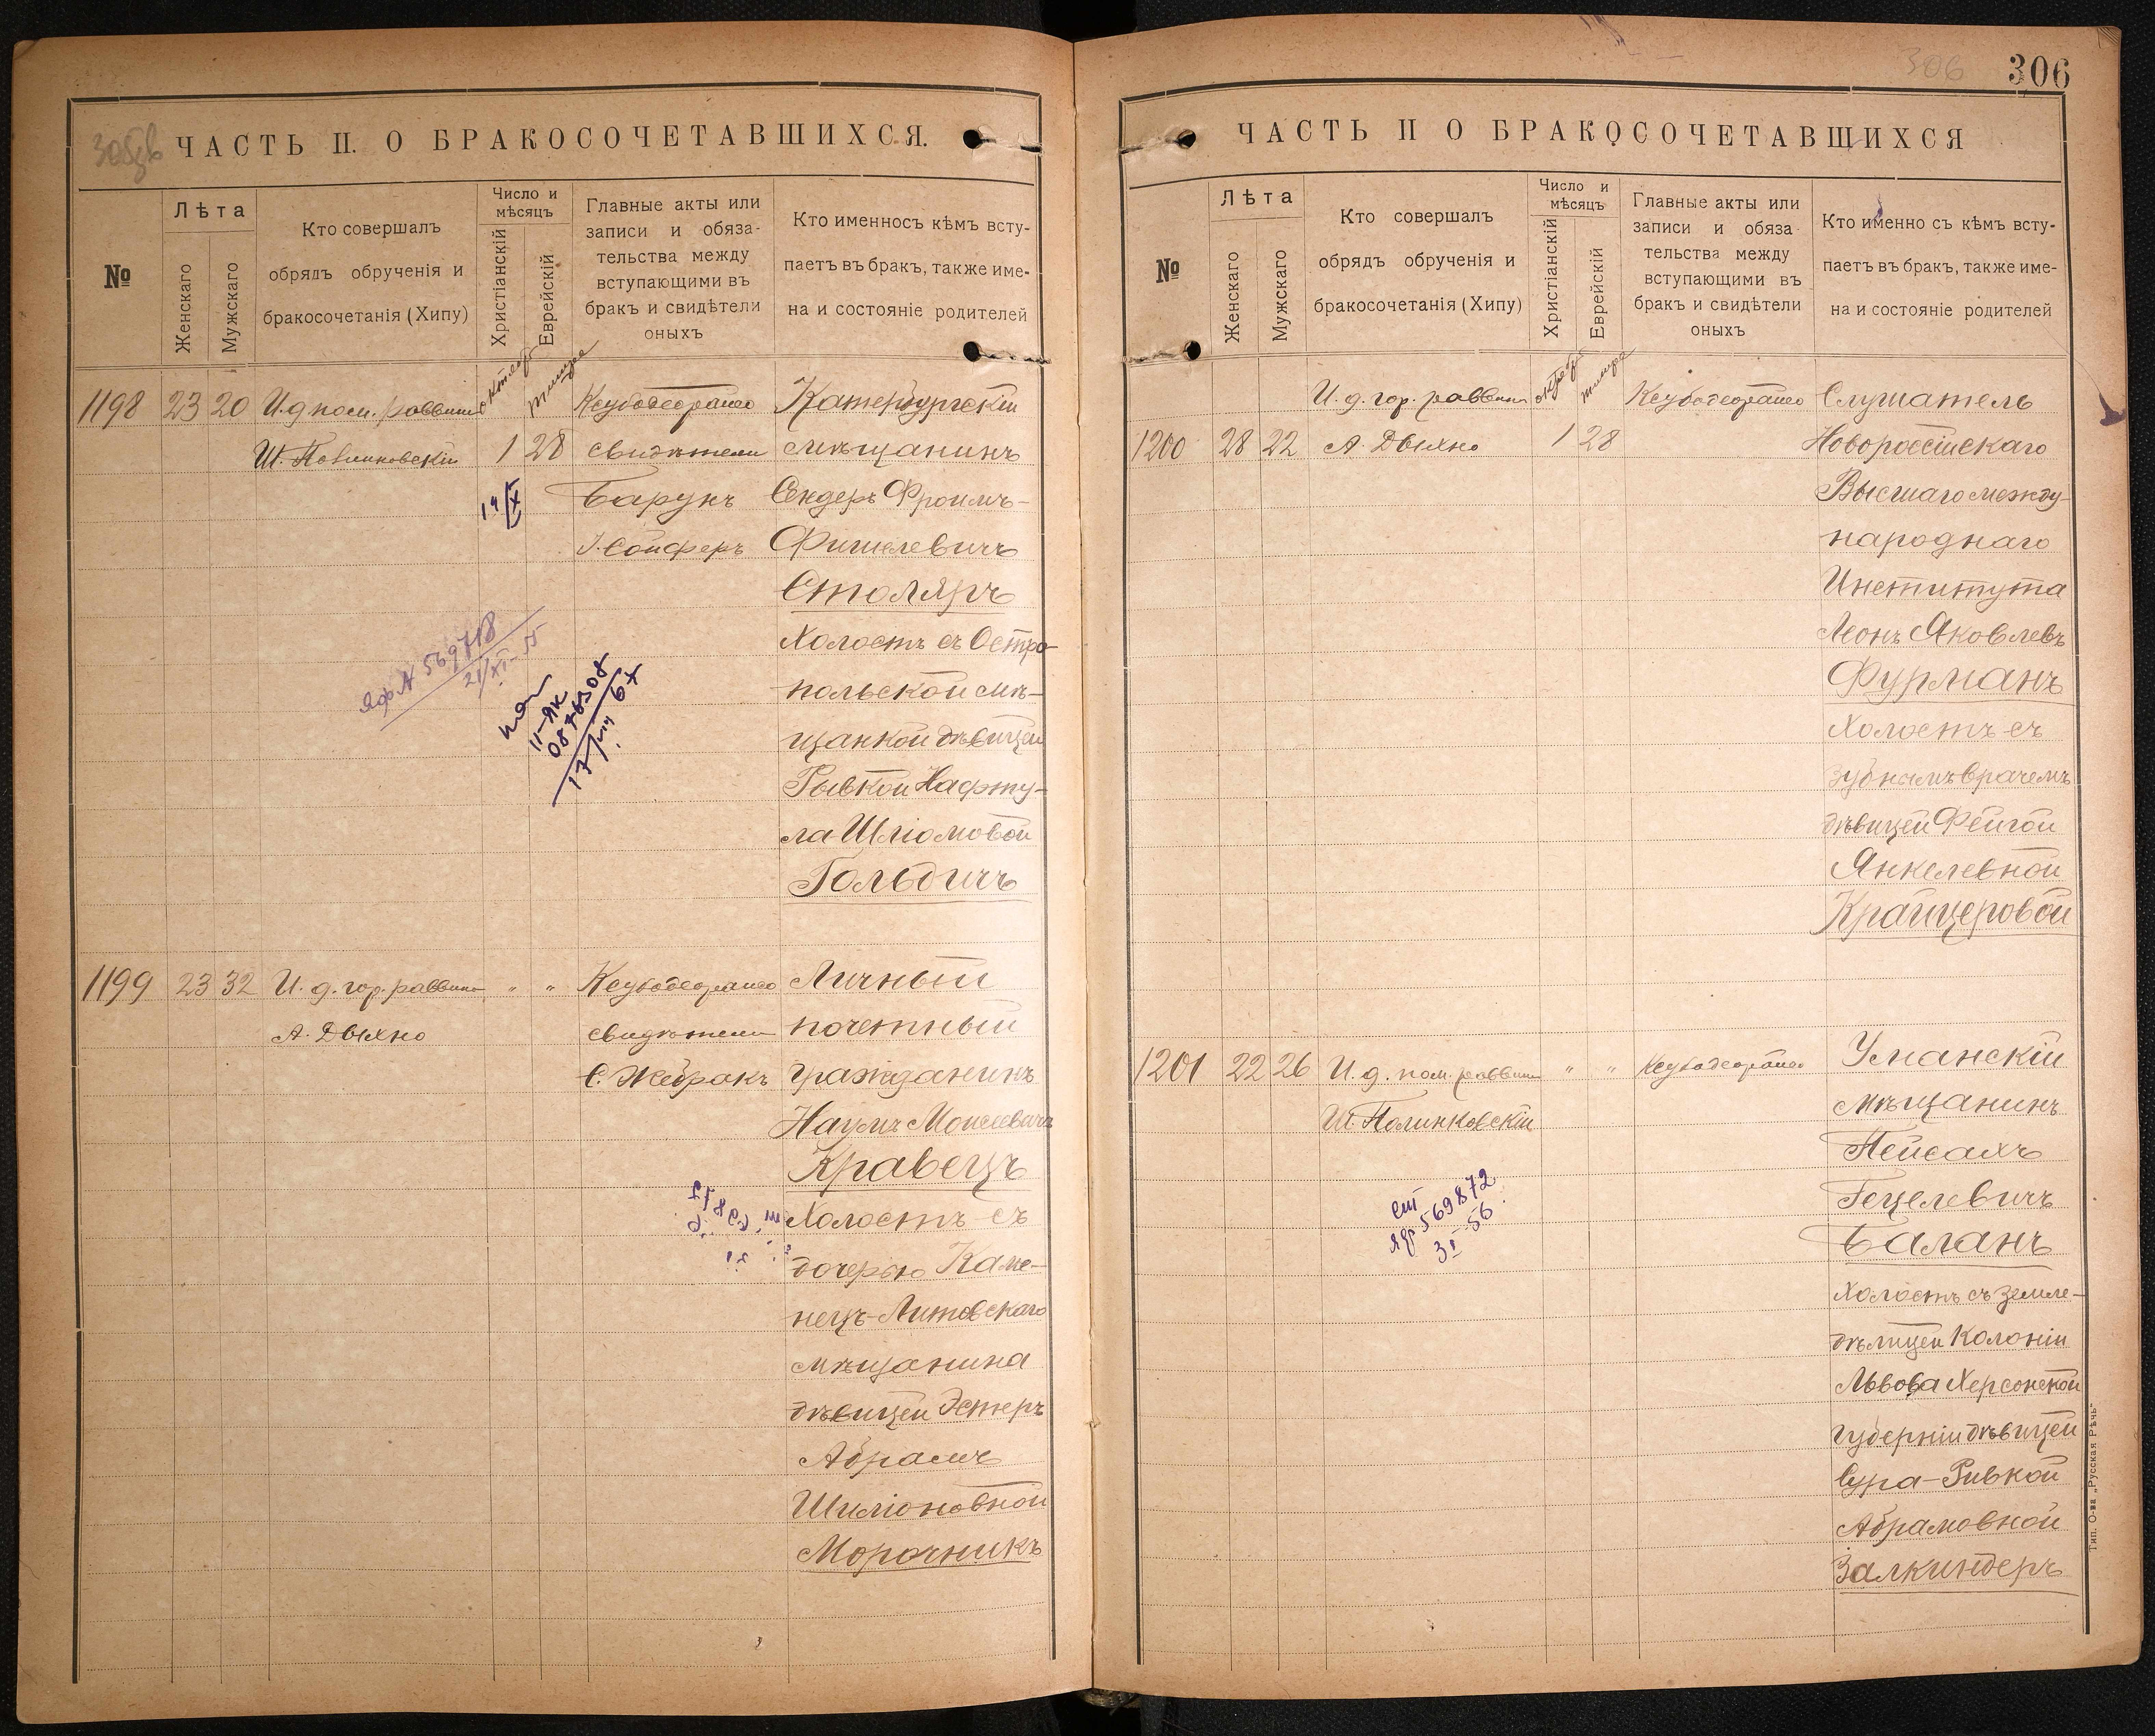 ЧАСТЬ II. О БРАКОСОЧЕТАВШИХСЯ.
№
Лѣта
Женскаго
Мужскаго
Кто совершалъ
обрядъ обрученія и
бракосочетанія (Хипу)
Число и
мѣсяцъ
Христіанскій
Еврейскій
Главные акты или
записи и обяза-
тельства между
вступающими въ
бракъ и свидѣтели
оныхъ
Кто именносъ кѣмъ всту-
паетъ въ бракъ, также име-
на и состояніе родителей
1198 23 20 И.д пом. раввина
Ш. Полинковскій
1 28
14/IX
свидѣтели
Барухъ
мѣщанинъ
Сендеръ Фроимъ-
Фишелевичъ
Столяръ
Холостъ съ Остро-
польской мѣ-
щанкой дѣвицей
Рывкой Нафту-
ла Шліомовой
Гольдичъ
21/XI-55
1199 23 32 И. д. гор. раввина " "
А. Дыхно
свидѣтели
С. Жебракъ
Личный
почетный
гражданинъ
Наумъ Моисеевичъ
Кравецъ
Холостъ съ
дочерью Каме-
нецъ-Литовскаго
мѣщанина
дѣвицей Эстеръ
Абрамъ
Шиліоновной
Морочникъ
306
306
ЧАСТЬ II О БРАКОСОЧЕТАВЩИХСЯ
№
Лѣта
Женскаго
Мужскаго
Кто совершалъ
обрядъ обрученія и
бракосочетанія (Хипу)
Число и
мѣсяцъ
Христіанскій
Еврейскій
Главные акты или
записи и обяза
тельства между
вступающими въ
бракъ и свидѣтели
оныхъ
Кто именно съ кѣмъ всту-
паетъ въ бракъ, также име-
на и состояніе родителей
И. д. гор. раввина
1200 28 22 А. Дыхно 1 28
Слушатель
Новороссійскаго
Высшаго между-
народнаго
Института
Леонъ Яковлевъ
Фурманъ
Холостъ съ
зубнымъ врачемъ
дѣвицей Фейгой
Янкелевной
Крайцеровой
1201 22 26 И. д. пом. раввина " "
Ш. Полинковскій
569872
3 I 56
Уманскій
мѣщанинъ
Пейсахъ
Гецелевичъ
Баланъ
Холостъ съ земле-
дѣлицей Колоніи
Львова Херсонской
губерніи дѣвицей
Сура-Ривкой
Абрамовной
Залкиндеръ
Тип. О-ва „Русская Рѣчь"